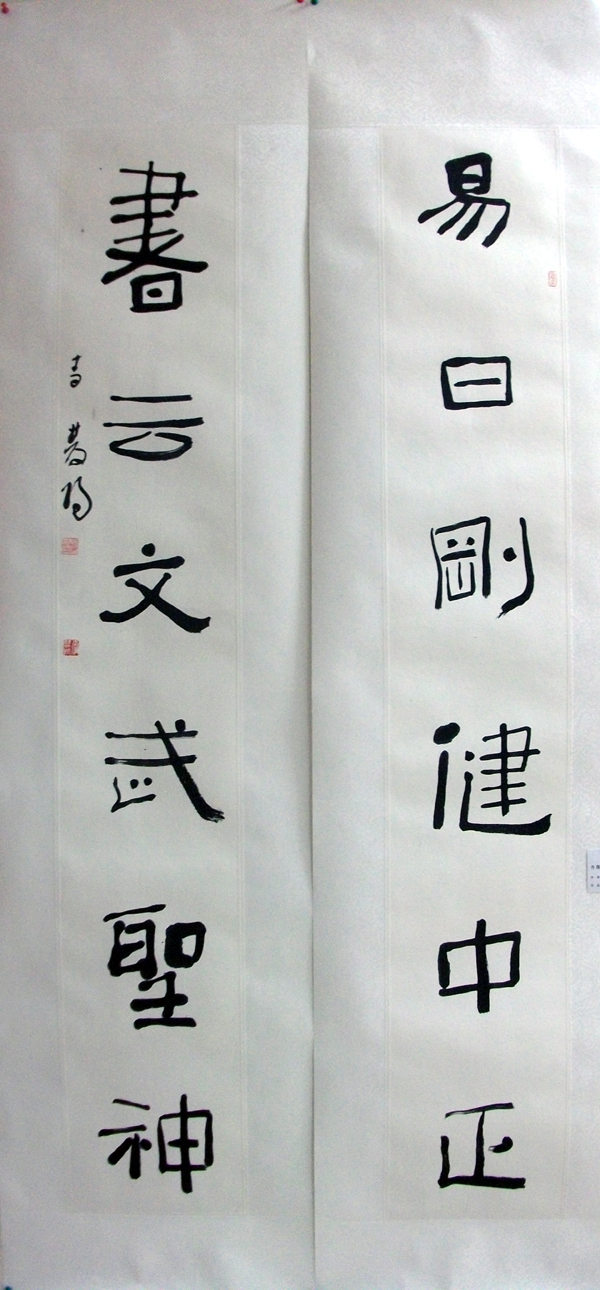 易曰剛健中正
書云文武聖神